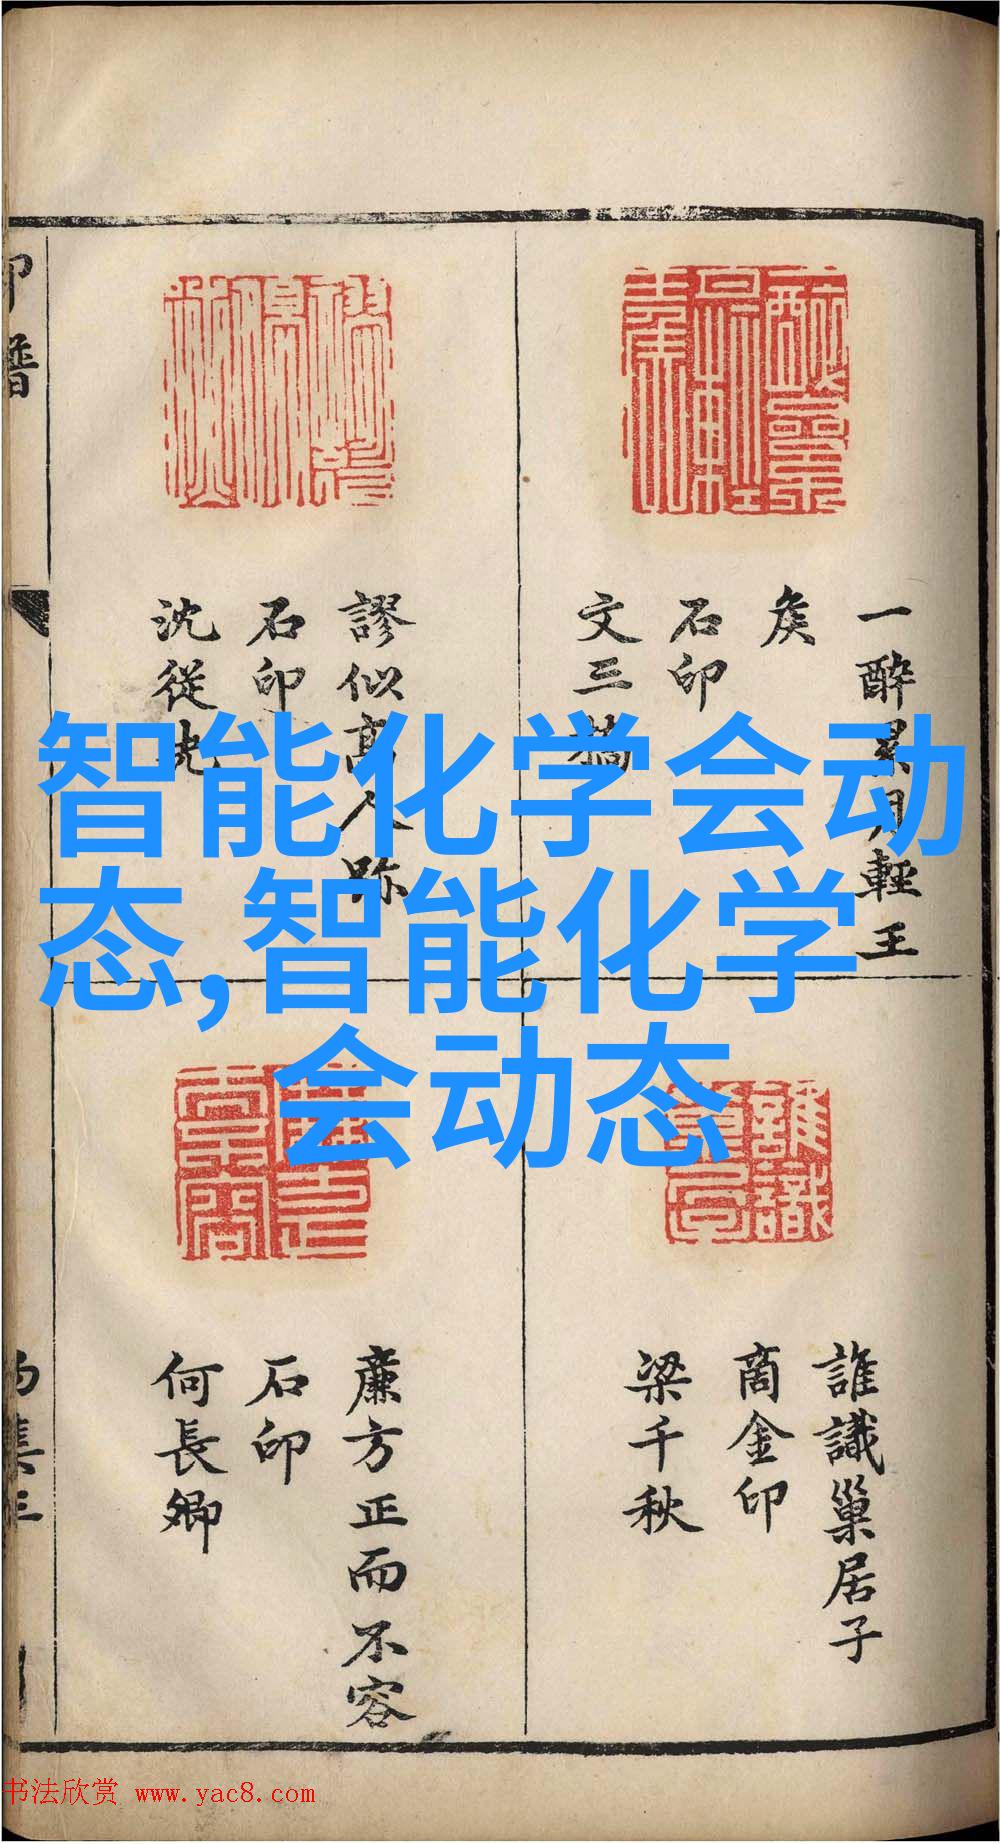 智能化学会动
态,智能化学
会动态
一醉累月輕王
矦
石印
文三橋
謬似高人跡
石印
沈從先
誰識巢居子
商金印
梁千秋
廉方正而不容
石印
何長卿
印譜
书法欣赏 www.yac8.com